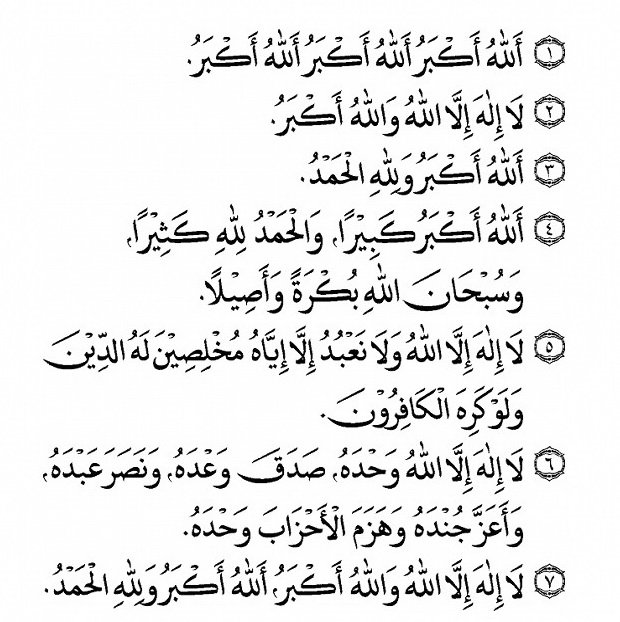 ١ اَللّٰهُ أَكْبَرُ اَللّٰهُ أَكْبَرُ اَللّٰهُ أَكْبَرُ.
٢ لَا إِلٰهَ إِلَّا اللّٰهُ وَاللّٰهُ أَكْبَرُ.
٣ اَللّٰهُ أَكْبَرُ وَلِلّٰهِ الْحَمْدُ.
٤ اَللّٰهُ أَكْبَرُ كَبِيْرًا، وَالْحَمْدُ لِلّٰهِ كَثِيْرًا،
وَسُبْحَانَ اللّٰهِ بُكْرَةً وَأَصِيْلًا.
٥ لَا إِلٰهَ إِلَّا اللّٰهُ وَلَا نَعْبُدُ إِلَّا إِيَّاهُ مُخْلِصِيْنَ لَهُ الدِّيْنَ
وَلَوْ كَرِهَ الْكَافِرُوْنَ.
٦ لَا إِلٰهَ إِلَّا اللّٰهُ وَحْدَهُ، صَدَقَ وَعْدَهُ، وَنَصَرَ عَبْدَهُ،
وَأَعَزَّ جُنْدَهُ وَهَزَمَ الْأَحْزَابَ وَحْدَهُ.
٧ لَا إِلٰهَ إِلَّا اللّٰهُ وَاللّٰهُ أَكْبَرُ، اَللّٰهُ أَكْبَرُ وَلِلّٰهِ الْحَمْدُ.